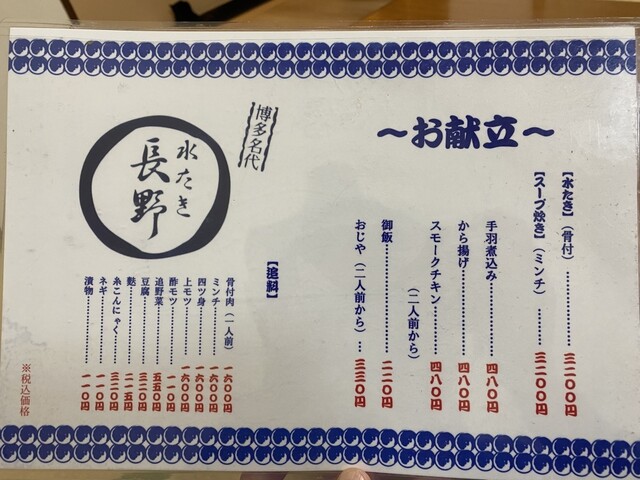 ～お献立～
【水たき】（骨付）…………三二〇〇円
【スープ炊き】（ミンチ）…………三二〇〇円
手羽煮込み…………四八〇円
から揚げ…………四八〇円
スモークチキン…………四八〇円
（二人前から）
御飯…………二二〇円
おじや（二人前から）…三三〇円
博多名代
水たき
長野
【追料】
骨付肉（一人前）一六〇〇円
ミンチ…………一六〇〇円
四ツ身…………一六〇〇円
上モツ…………一六〇〇円
酢モツ…………一一〇円
追野菜…………五五〇円
豆腐…………三二〇円
麩…………二一五円
糸こんにゃく…………三二〇円
ネギ…………一一〇円
漬物…………一一〇円
※税込価格